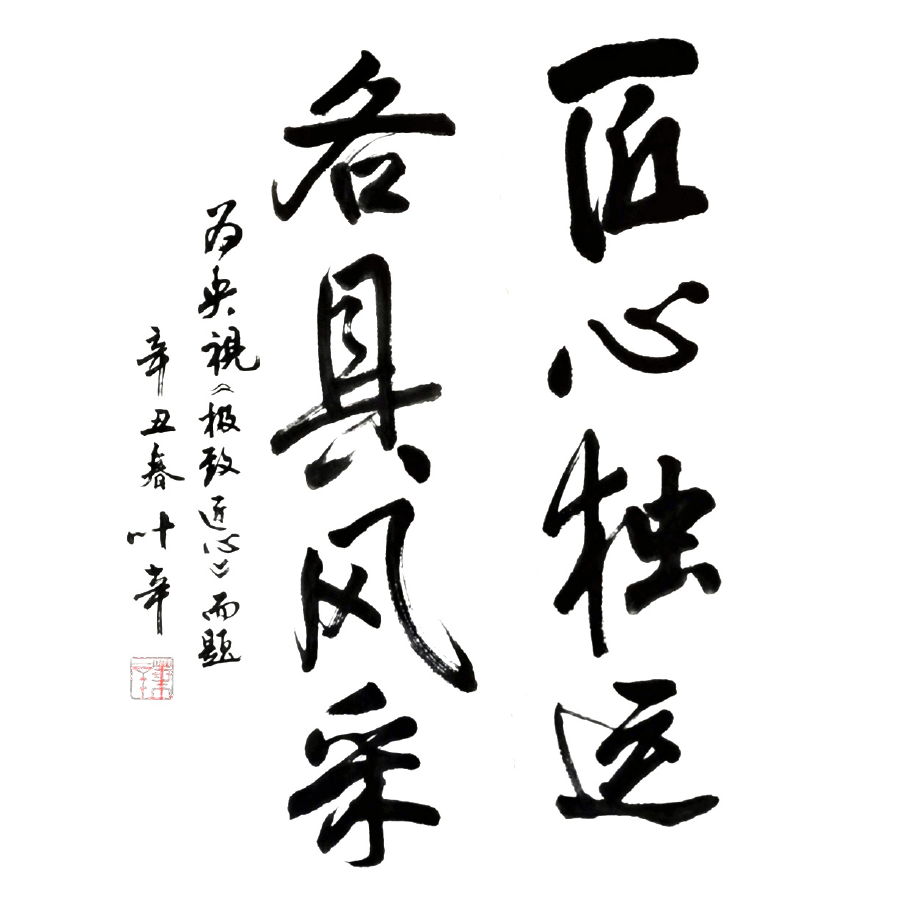 匠心独运
各具风采
为央視《极致匠心》而题
辛丑春 叶辛